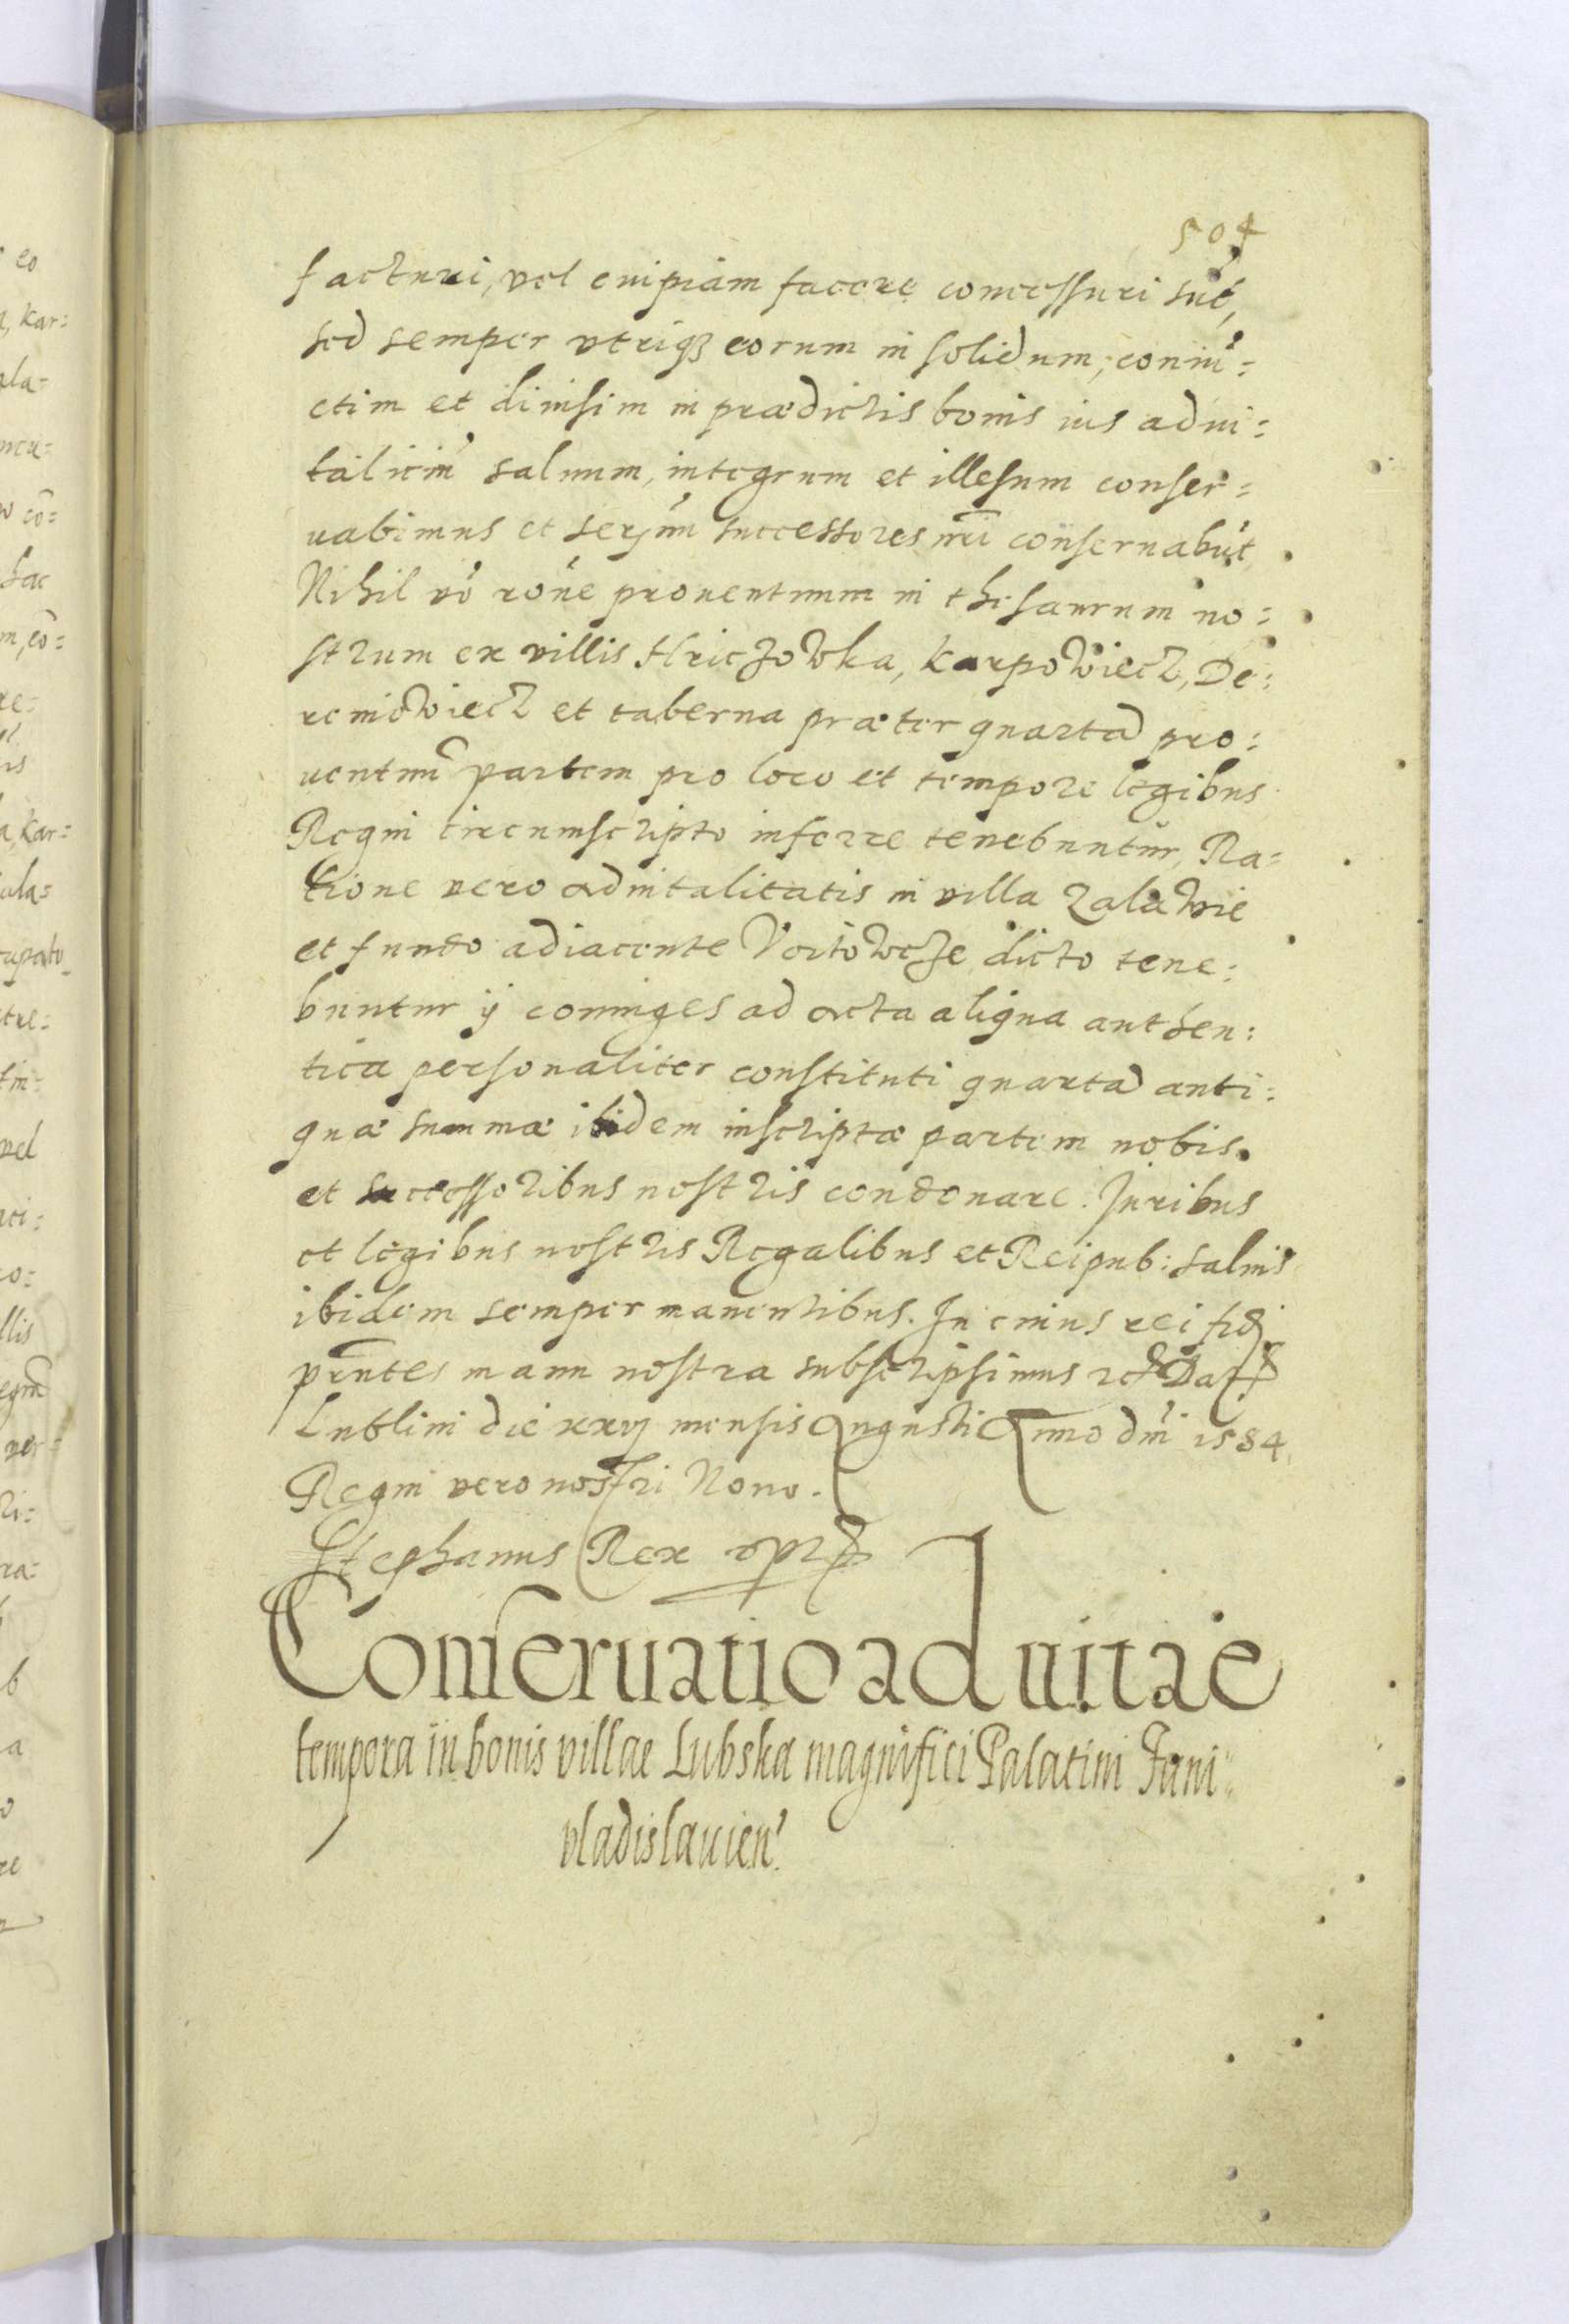 504
facturi, vel cuipiam facere concessuri sut,
sed semper vtriqꝫ eorum in solidum, coniu=
ctim et diuisim in prædictis bonis ius adui=
taliciu saluum, integrum et illesum conser=
uabimus et serꝫmi successores nri conseruabut
Nihil vo rone prouentuum in thesaurum no=
strum ex villis Hriczowka, Karpowiecz, De=
remiowiecz et taberna præter quarta pro=
uentuu partem pro loco et tempore legibus
Regni circumscripto inferre tenebuntur, Ra=
tione vero aduitalitatis in villa Zalawie
et fundo adiacente Voitowcze dicto tene=
buntur ij coniuges ad acta aliqua authen=
tica personaliter constituti quarta anti=
quæ summæ ibidem inscriptæ partem nobis
et successoribus nostris condonare. Juribus
et legibus nostris Regalibus et Reipub: saluis
ibidem semper manentibus. In cuius rei fid
prntes manu nostra subscripsimus Dat
Lublini die xxvj mensis Augusti Anno dni 1584.
Regni vero nostri Nono.
Stephanus Rex
Conseruatio ad uitae
tempora in bonis villae Lubska magnifici Palatini Juni=
vladislauien